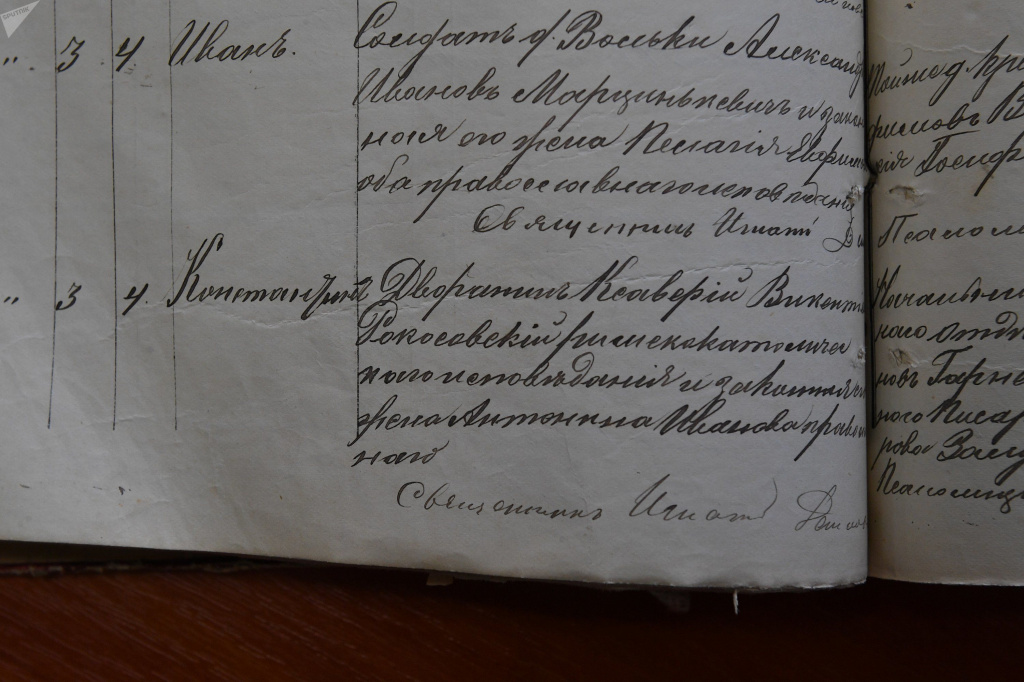 SPUTNIK
„ 3 4. Иванъ. Солдатъ д. Вольки Александ
Ивановъ Марцинькевичъ и закон
ная его жена Пелагія Ефрим
оба православнаго исповѣданія
Священникъ Игнатій
„ 3 4. Константинъ Дворянинъ Ксаверій Викент
Рокосовскій римскокатоличес
каго исповѣданія и законная его
жена Антонина Иванова правос
наго
Священникъ Игнатій
фимовъ В
сія Іосиф
Псалом
Начальни
наго отд
новъ Гарн
наго Писар
рова
Псаломщ